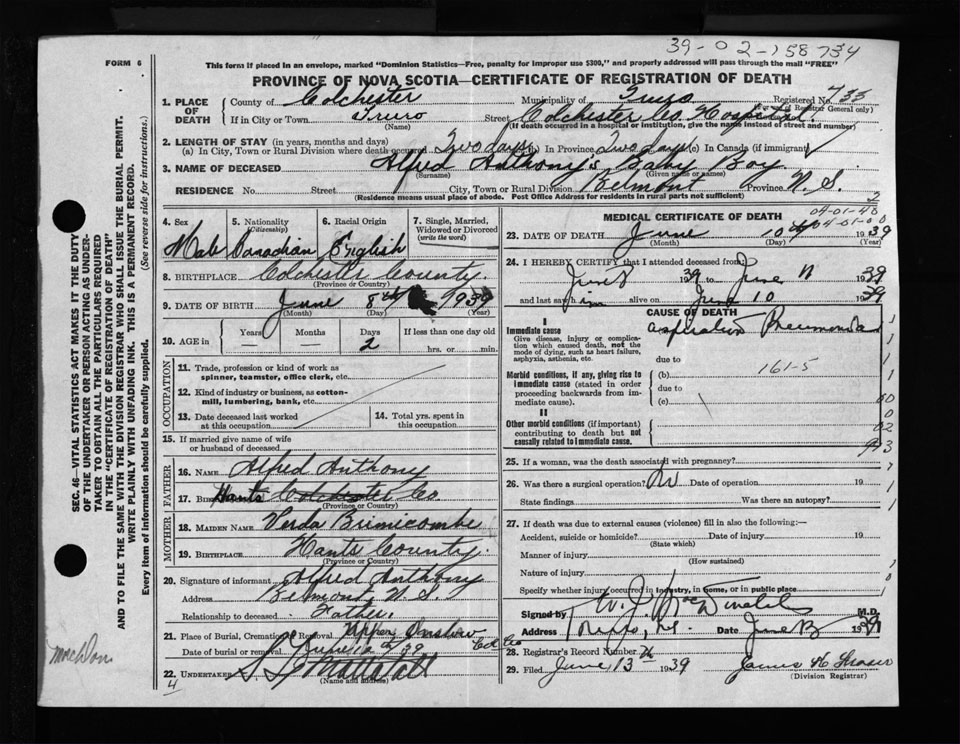 39-02-158734
FORM 6
This form if placed in an envelope, marked "Dominion Statistics—Free, penalty for improper use $300," and properly addressed will pass through the mail "FREE"
PROVINCE OF NOVA SCOTIA—CERTIFICATE OF REGISTRATION OF DEATH
1. PLACE OF DEATH
County of Colchester Municipality of Truro Registered No. 733
(For use of Registrar General only)
If in City or Town Truro Street Colchester Co. Hospital.
(Name) (If death occurred in a hospital or institution, give the name instead of street and number)
2. LENGTH OF STAY (in years, months and days)
(a) In City, Town or Rural Division where death occurred Two days (b) In Province Two days (c) In Canada (if immigrant)
3. NAME OF DECEASED Alfred Anthony's Baby Boy
(Surname) (Given name or names)
RESIDENCE No. Street City, Town or Rural Division Belmont Province N. S.
(Residence means usual place of abode. Post Office Address for residents in rural parts not sufficient) 2
4. Sex 5. Nationality (Citizenship) 6. Racial Origin 7. Single, Married, Widowed or Divorced (write the word)
Male Canadian English
8. BIRTHPLACE Colchester County.
(Province or Country)
9. DATE OF BIRTH June 8th 1939
(Month) (Day) (Year)
10. AGE in Years Months Days If less than one day old
— — 2 hrs. or min.
OCCUPATION
11. Trade, profession or kind of work as spinner, teamster, office clerk, etc.
12. Kind of industry or business, as cotton-mill, lumbering, bank, etc.
13. Date deceased last worked at this occupation 14. Total yrs. spent in this occupation
15. If married give name of wife or husband of deceased
FATHER
16. NAME Alfred Anthony
17. Hants Colchester Co
(Province or Country)
MOTHER
18. MAIDEN NAME Verda Brimicombe
19. BIRTHPLACE Hants County.
(Province or Country)
20. Signature of informant Alfred Anthony
Address Belmont, N. S.
Relationship to deceased Father.
21. Place of Burial, Cremation or Removal Upper Onslow Col Co
Date of burial or removal June 39
22. UNDERTAKER
(Name and address)
4
MEDICAL CERTIFICATE OF DEATH
04-01-40
04-01-00
23. DATE OF DEATH June 10th 1939
(Month) (Day) (Year)
24. I HEREBY CERTIFY that I attended deceased from
June 8 1939 to June 1939
and last saw him alive on June 10 1939
CAUSE OF DEATH
I
Immediate cause aspiration Pneumonia
Give disease, injury or complication which caused death, not the mode of dying, such as heart failure, asphyxia, asthenia, etc.
due to
Morbid conditions, if any, giving rise to immediate cause (stated in order proceeding backwards from immediate cause).
(b) 161-5
due to
(c)
II
Other morbid conditions (if important) contributing to death but not causally related to immediate cause.
25. If a woman, was the death associated with pregnancy?
26. Was there a surgical operation? No Date of operation 19
State findings Was there an autopsy?
27. If death was due to external causes (violence) fill in also the following:—
Accident, suicide or homicide? Date of injury 19
(State which)
Manner of injury
(How sustained)
Nature of injury
Specify whether injury occurred in Industry, in Home, or in public place
Signed by W. J. MacDonald M.D.
Address Truro, N.S. Date June 1939
28. Registrar's Record Number
29. Filed June 13th 1939 James H Fraser
(Division Registrar)
SEC. 46—VITAL STATISTICS ACT MAKES IT THE DUTY OF THE UNDERTAKER OR PERSON ACTING AS UNDERTAKER TO OBTAIN ALL THE PARTICULARS REQUIRED IN THE "CERTIFICATE OF REGISTRATION OF DEATH" AND TO FILE THE SAME WITH THE DIVISION REGISTRAR WHO SHALL ISSUE THE BURIAL PERMIT.
WRITE PLAINLY WITH UNFADING INK. THIS IS A PERMANENT RECORD.
Every item of information should be carefully supplied. (See reverse side for instructions.)